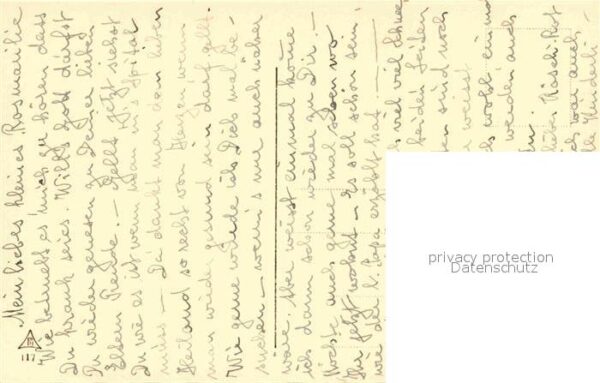 Mein liebes kleines Rosmarilie
Wie bemüht es mich zu hören dass
Du krank seist. Will's Gott darfst
Du wieder genesen zu Deiner lieben
Eltern Freude. – Gellt jetzt siehst
Du wie es ist wenn man in's Spital
muss – Da dankt man dem lieben
Heiland so recht von Herzen wenn
man wieder gesund sein darf gell.
Wie gerne würde ich Dich mal be-
suchen – wenn's nur auch näher
wäre. Aber weisst einmal komme
ich dann schon wieder zu Dir. –
Möchte auch gerne mal sehen wo
Ihr jetzt wohnt – es soll schön sein.
wie der l. Papa erzählt hat –
viel
beiden
sind noch
weisst
wohl einmal
werden auch
war auch
privacy protection
Datenschutz